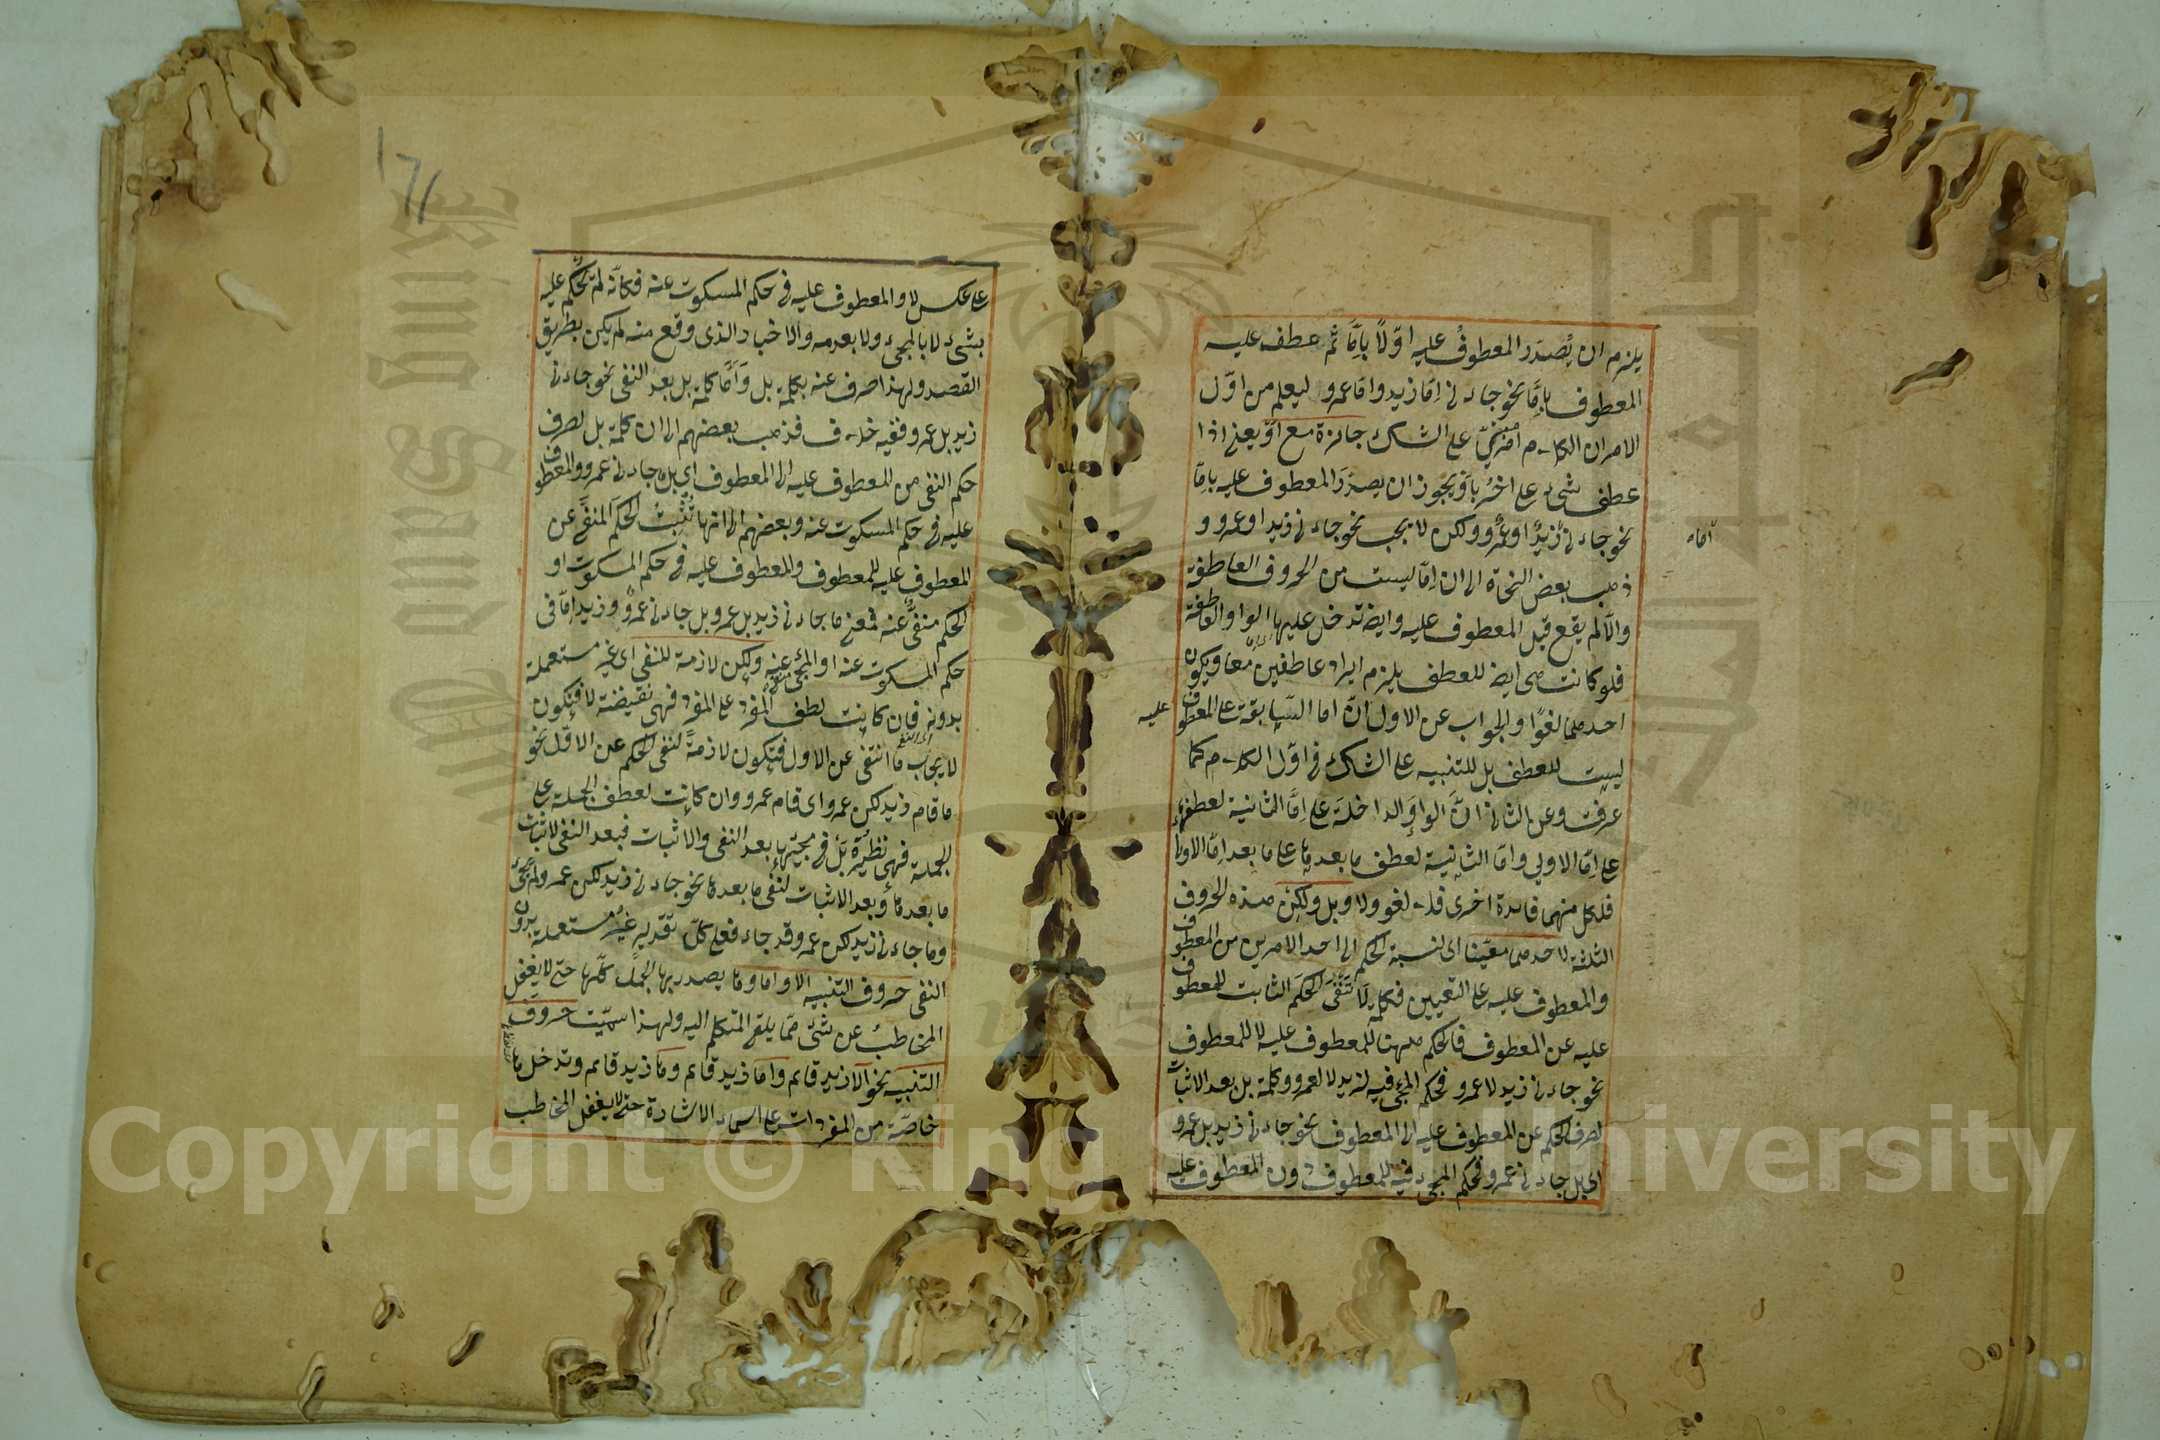 يلزم ان يُصدر المعطوف عليه اوّلاً بامّا ثم عطف عليه
المعطوف بامّا نحو جاءنى امّا زيد وامّا عمرو ليعلم من اوّل
الامر ان الكلام مبنىّ على الشك جائزة مع او يعنى اذا
عطف شىء على اخر باو يجوز ان يصدر المعطوف عليه بامّا
نحو جاءنى امّا زيدٌ او عمرٌو ولكن لا يجب نحو جاءنى زيد او عمرو و
ذهب بعض النحاة الى ان امّا ليست من الحروف العاطفة
والّا لم يقع قبل المعطوف عليه وايضا تدخل عليها الواو العاطفة
فلو كانت هى ايضا للعطف يلزم ايراد عاطفين معا ويكون
احدهما لغوًا والجواب عن الاول انّ امّا السابقة على المعطوف
عليه
ليست للعطف بل للتنبيه على الشك فى اوّل الكلام كما
عرفت وعن الثانى انّ الواو الداخلة على امّا الثانية لعطفها
على امّا الاولى وامّا الثانية لعطف ما بعدها على ما بعد امّا الاولى
فلكل منهما فائدة اخرى فلا لغو ولا وبل ولكن هذه الحروف
الثلثة لاحدهما معيّنا اى نسبة الحكم الى احد الامرين من المعطوف
والمعطوف عليه على التعيين فكلمة لا تنفى الحكم الثابت للمعطوف
عليه عن المعطوف فالحكم ههنا للمعطوف عليه لا للمعطوف
نحو جاءنى زيد لا عمرو فحكم المجئ فيه لزيد لا لعمرو وكلمة بل بعد الاثبات
لصرف الحكم عن المعطوف عليه الى المعطوف نحو جاءنى زيد بل عمرو
اى بل جاءنى عمرو فحكم المجئ فيه للمعطوف دون المعطوف عليه
171
على عكس لا والمعطوف عليه فى حكم المسكوت عنه فكانّه لم يُحكم عليه
بشىء لا بالمجئ ولا بعدمه والاخبار الذى وقع منه لم يكن بطريق
القصد ولهذا صرف عنه بكلمة بل وامّا كلمة بل بعد النفى نحو ما جاءنى
زيد بل عمرو ففيه خلاف فذهب بعضهم الى ان كلمة بل لصرف
حكم النفى من المعطوف عليه الى المعطوف اى بل ما جاءنى عمرو والمعطوف
عليه فى حكم المسكوت عنه وبعضهم الى انها تثبت الحكم المنفى عن
المعطوف عليه للمعطوف والمعطوف عليه فى حكم المسكوت او
الحكم منفىٌّ عنه فمعنى ما جاءنى زيد بل عمرو بل جاءنى عمرٌو وزيد امّا فى
حكم المسكوت عنه او المجئ منفى عنه ولكن لازمة للنفى اى غير مستعملة
بدونه فان كانت لعطف المفرد على المفرد فهى نقيضة لا فتكون
لايجاب ما انتفى عن الاول فتكون لازمةً لنفى الحكم عن الاوّل نحو
ما قام زيد لكن عمرو اى قام عمرو وان كانت لعطف الجملة على
الجملة فهى نظيرة بل فى مجيئها بعد النفى والاثبات فبعد النفى لاثبات
ما بعدها وبعد الاثبات لنفى ما بعدها نحو جاءنى زيد لكن عمرو لم يجئ
وما جاءنى زيد لكن عمرو قد جاء فعلى كلّ تقدير غير مستعملة بدون
النفى حروف التنبيه الا واما وها يصدر بها الجمل كلّها حتى لا يغفل
المخاطب عن شىء ممّا يلقى المتكلم اليه ولهذا سمّيت حروف
التنبيه نحو الا زيد قائم واما زيد قائم وها زيد قائم وتدخل ها
خاصّة من المفردات على اسماء الاشارة حتى لا يغفل المخاطب
Copyright © King Saud University